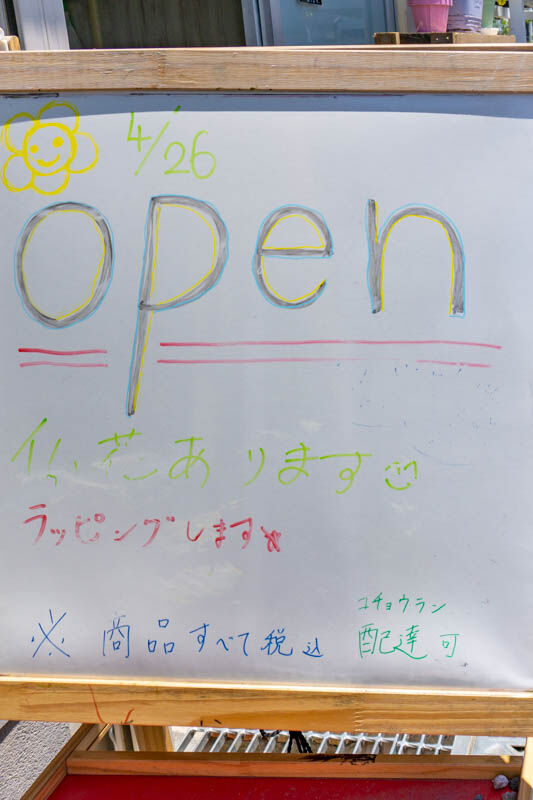 4/26
open
仏花あります
ラッピングします
※ 商品すべて税込
コチョウラン
配達可